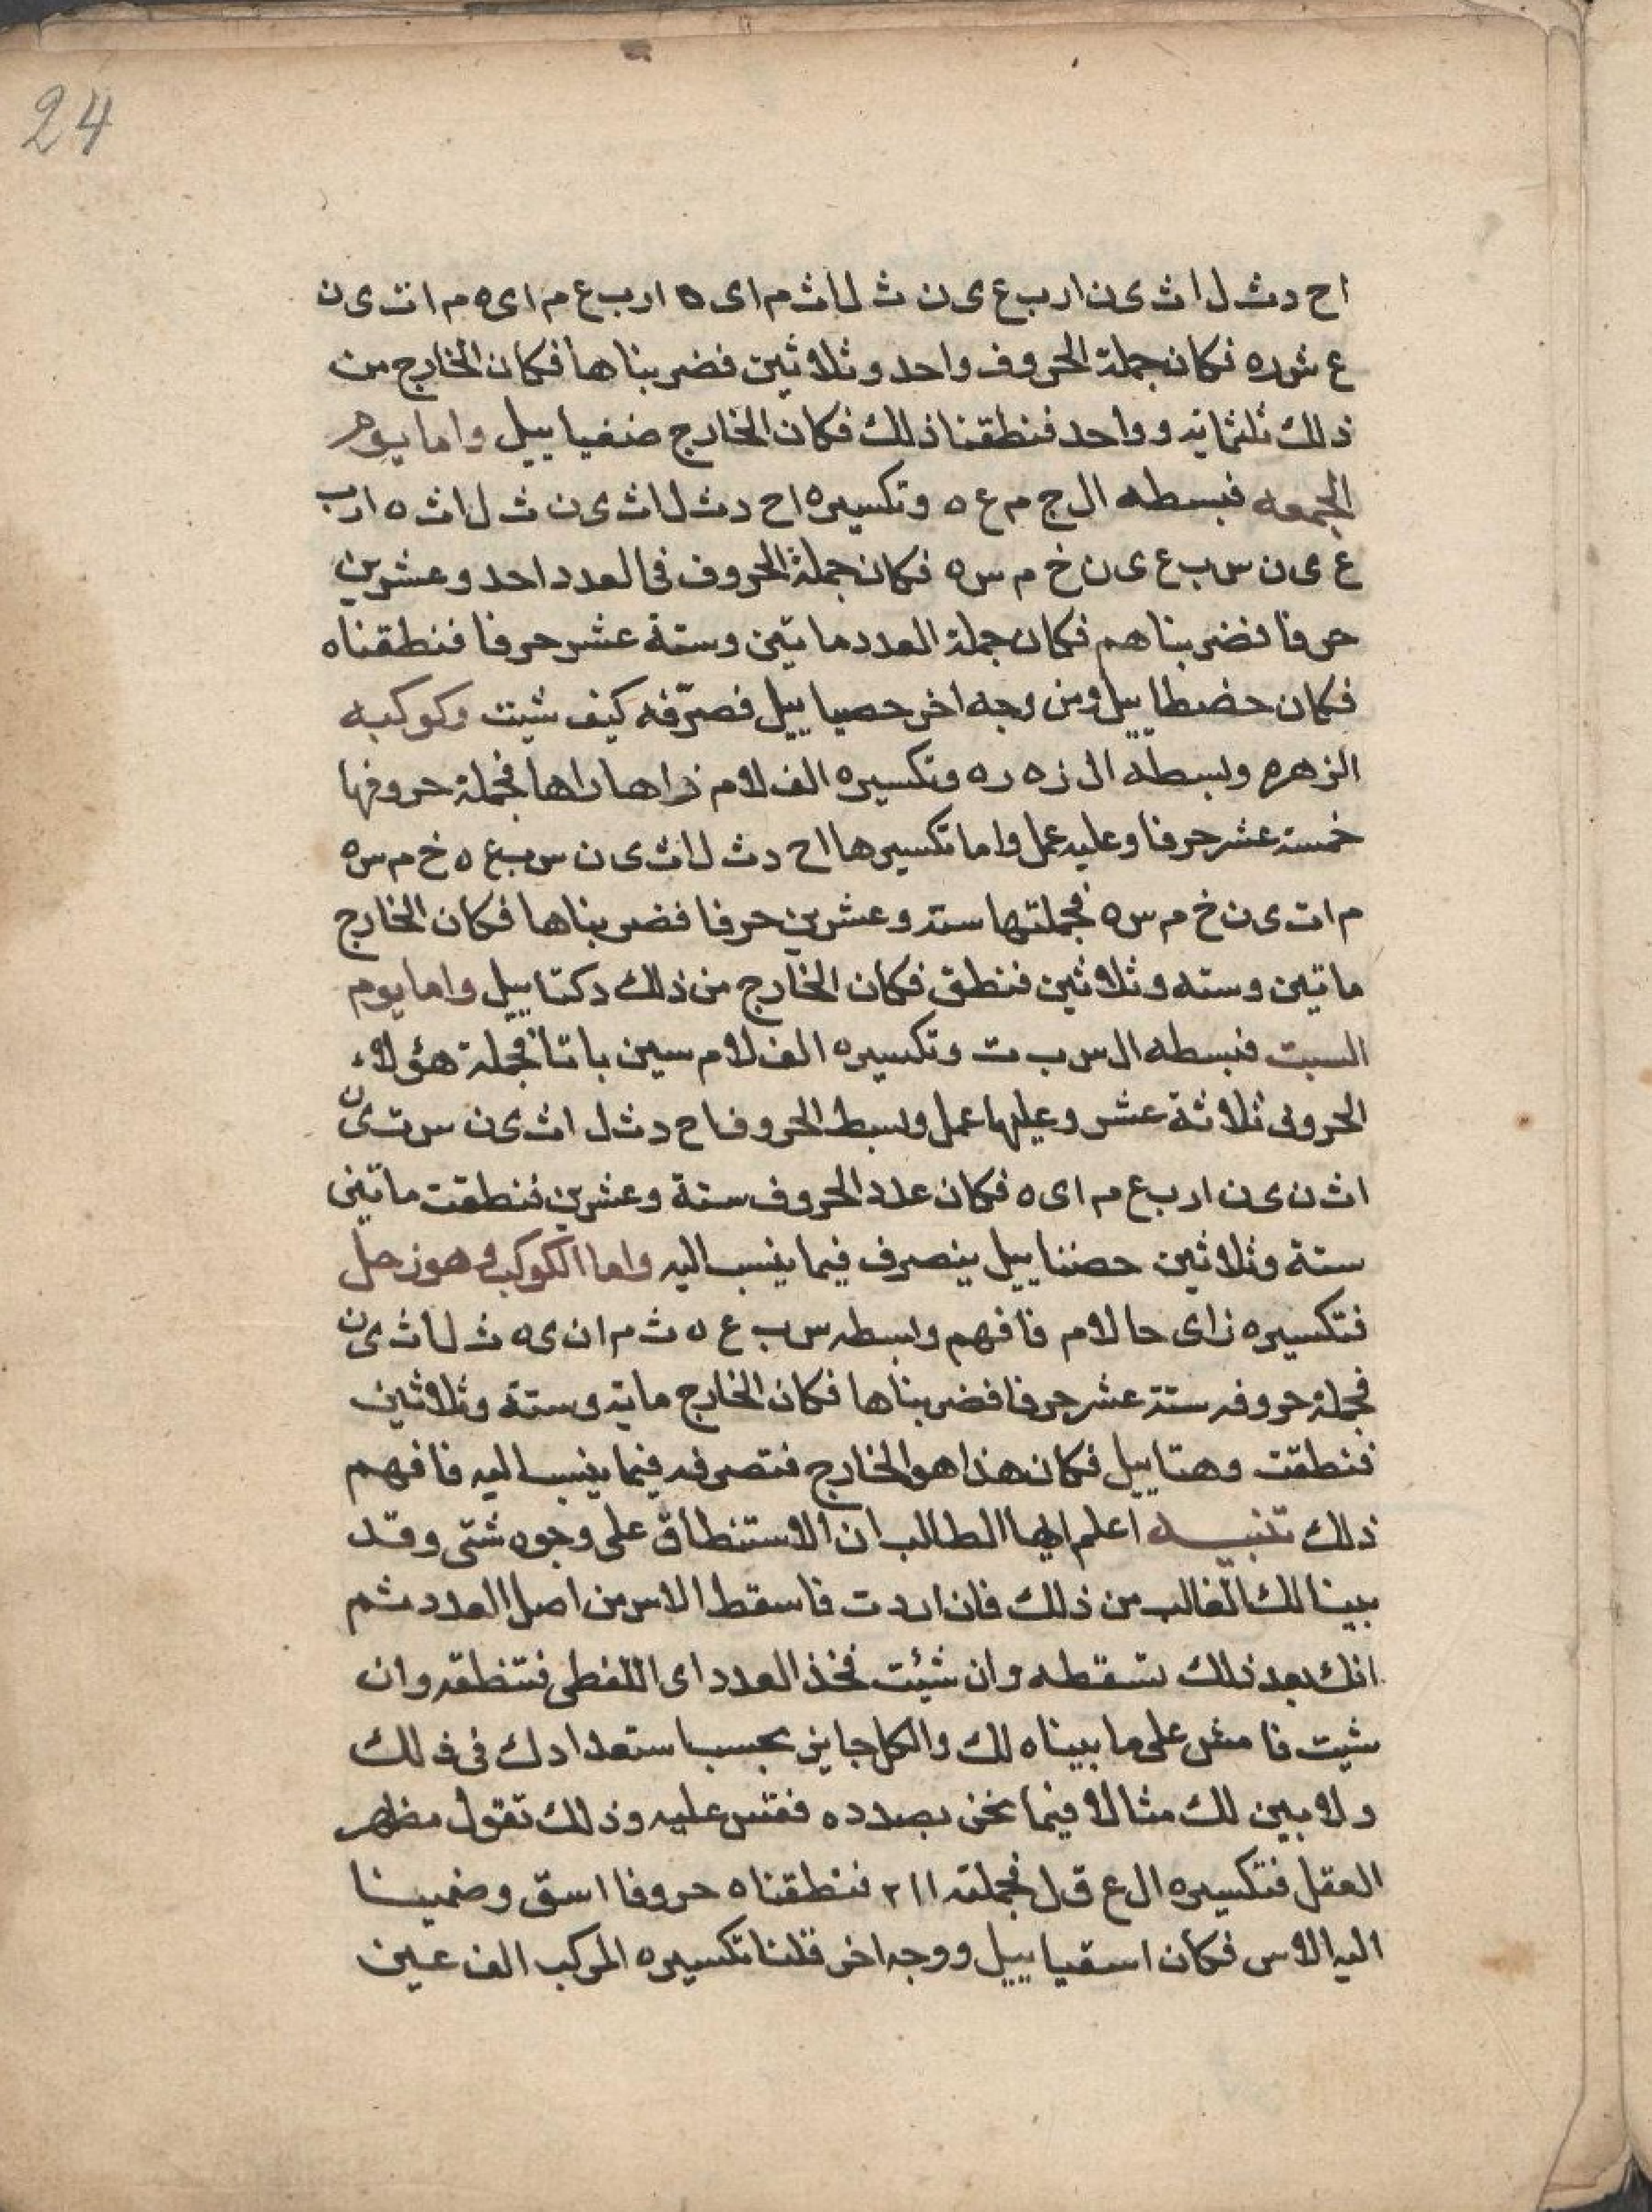 24
ا ح د ث ل ا ث ى ن ا ر ب ع ى ن ث ل ا ث م ا ى ه ا ر ب ع م ا ى ه م ا ت ى ن
ع ش ر ه فكان جملة الحروف واحد وثلاثين فضربناها فكان الخارج من
ذلك ثلثماية وواحد فنطقنا ذلك فكان الخارج ضغياييل واما يوم
الجمعه فبسطه ال ج م ع ه وتكسيره ا ح د ث ل ا ث ى ن ث ل ا ث ه ا ر ب
ع ى ن س ب ع ى ن خ م س ه فكان جملة الحروف فى العدد احد وعشرين
حرفا فضربناهم فكان جملة العدد ماتين وستة عشر حرفا فنطقناه
فكان حضطاييل ومن وجه اخر حصياييل فصرّفه كيف شيت وكوكبه
الزهره وبسطه ال ز ه ر ه وتكسيره الف لام زا ها را ها فجملة حروفها
خمسة عشر حرفا وعليه عمل واما تكسيرها ا ح د ث ل ا ث ى ن س ب ع ه خ م س ه
م ا ت ى ن خ م س ه فجملتها ستة وعشرين حرفا فضربناها فكان الخارج
ماتين وسته وثلاثين فنطق فكان الخارج من ذلك دكتاييل واما يوم
السبت فبسطه ال س ب ت وتكسيره الف لام سين با تا فجملة هؤلاء
الحروف ثلاثة عشر وعليها عمل وبسط الحروف ا ح د ث ل ا ث ى ن س ت ى ن
ا ث ن ى ن ا ر ب ع م ا ى ه فكان عدد الحروف ستة وعشرين فنطقت ماتين
ستة وثلاثين حصنناييل ينصرف فيما ينسب اليه واما الكوكب فهو زحل
فتكسيره زاى حا لام فافهم وبسطه س ب ع ه ث م ا ن ى ه ث ل ا ث ى ن
فجملة حروفه ستة عشر حرفا فضربناها فكان الخارج ماية وستة وثلاثين
فنطقت وهتاييل فكان هذا هو الخارج فتصرفه فيما ينسب اليه فافهم
ذلك تنبيه اعلم ايها الطالب ان الاستنطاق على وجوه شتى وقد
بينا لك الغالب من ذلك فان اردت فاسقط الاس من اصل العدد ثم
انك بعد ذلك تسقطه وان شئت فخذ العدد اى اللفظى فتنطقه وان
شيت فامش على ما بيناه لك والكل جايز بحسب استعدادك فى ذلك
ولابين لك مثالا فيما نحن بصدده فقس عليه وذلك تقول مظهر
العقل فتكسيره ال ع ق ل فجملته ٢١١ فنطقناه حروفا اسق وضمينا
اليه الاس فكان اسقياييل ووجه اخر قلنا تكسيره المركب الف عين